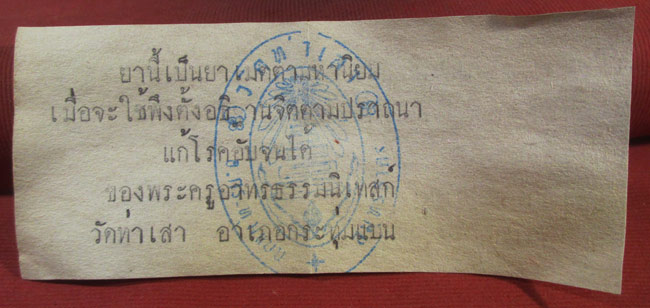 ยานี้เป็นยาเมตตามหานิยม
เมื่อจะใช้พึงตั้งอธิฐานจิตตามปรารถนา
แก้โรคอับจนได้
ของพระครูอาทรธรรมนิเทสก์
วัดท่าเสา อำเภอกระทุ่มแบน